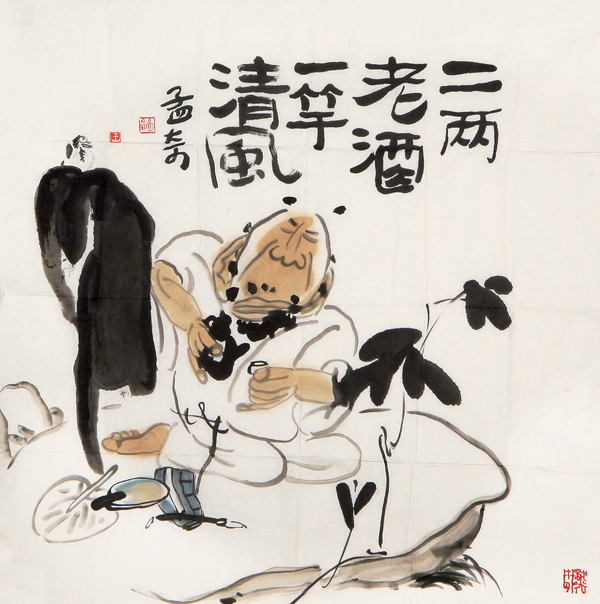 二两
老酒
一竿
清風
孟奇